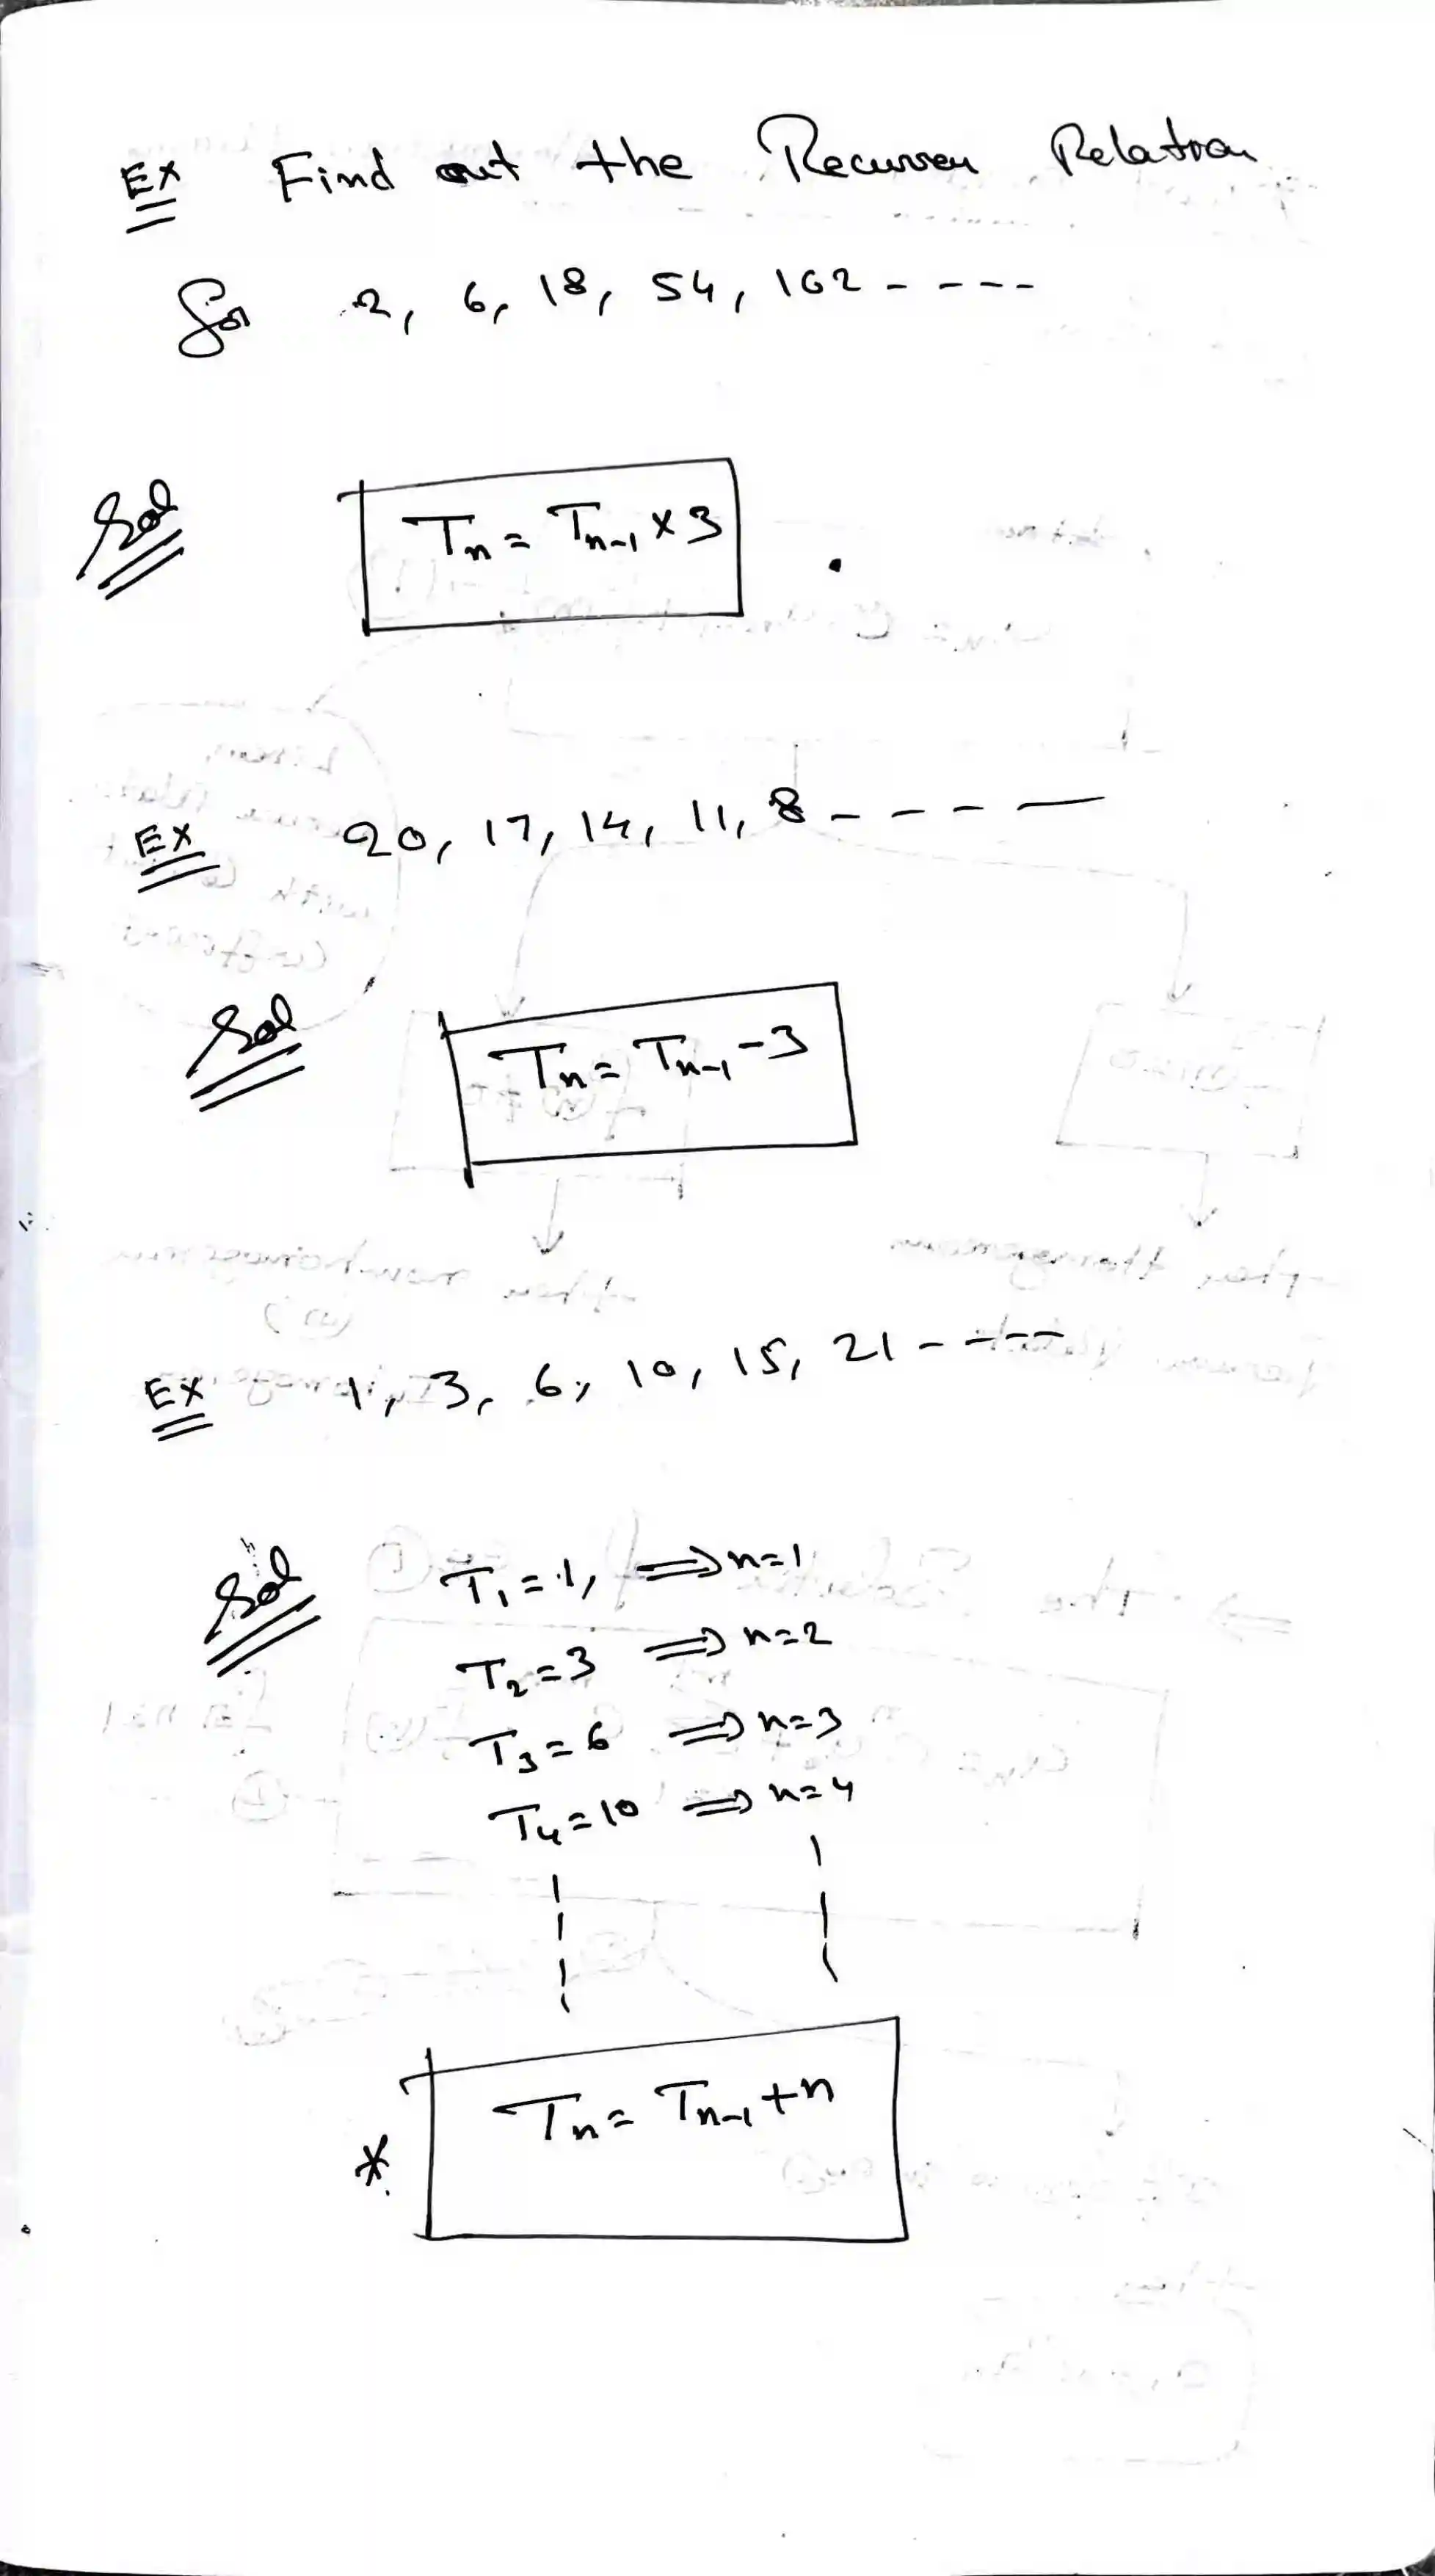 Ex Find out the Recurren Relation
for 2, 6, 18, 54, 162 - - - -
Sol Tn = Tn-1 × 3
Ex 20, 17, 14, 11, 8 - - - -
Sol Tn = Tn-1 - 3
Ex 1, 3, 6, 10, 15, 21 - - - -
Sol T1 = 1, ⟹ n=1
T2 = 3 ⟹ n=2
T3 = 6 ⟹ n=3
T4 = 10 ⟹ n=4
* Tn = Tn-1 + n